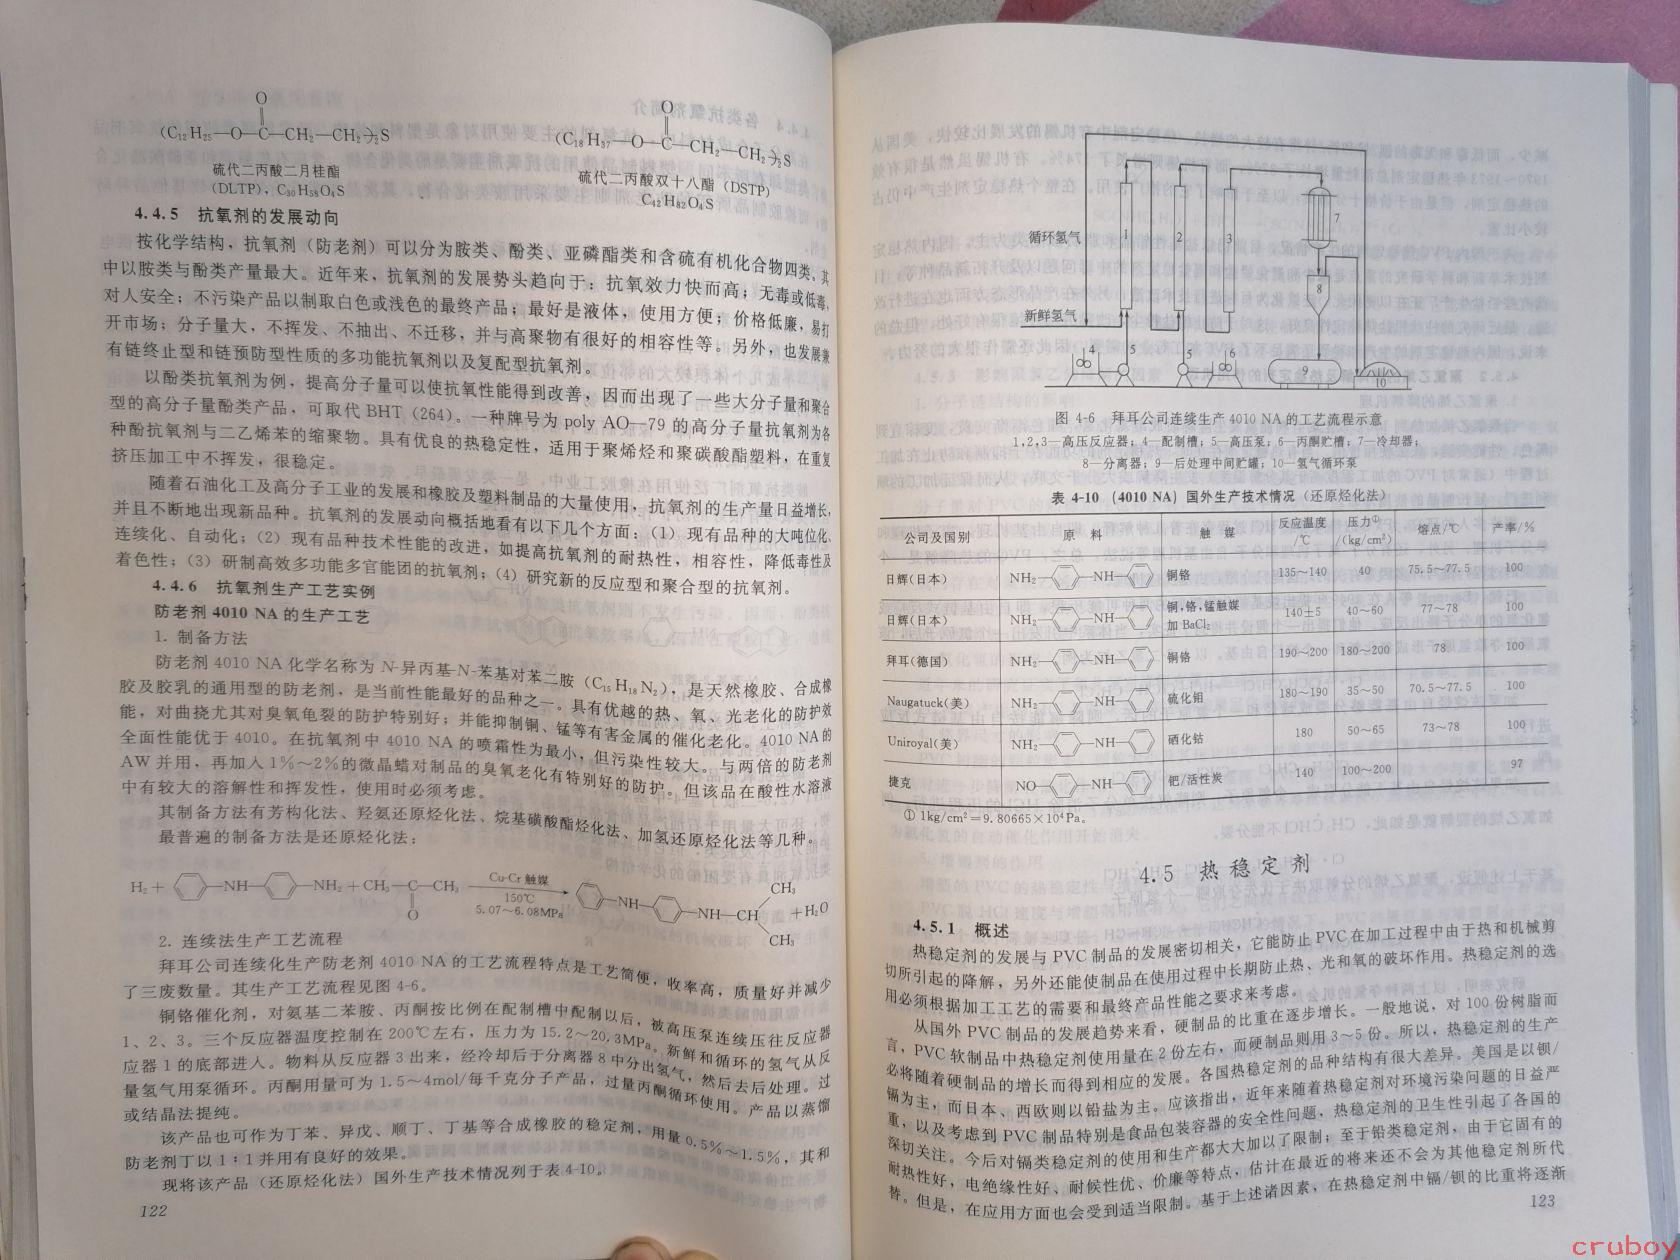 (C12H25—O—C—CH2—CH2)2S
O
硫代二丙酸二月桂酯
(DLTP), C30H58O4S
(C18H37—O—C—CH2—CH2)2S
O
硫代二丙酸双十八酯 (DSTP)
C42H82O4S
4.4.5 抗氧剂的发展动向
按化学结构，抗氧剂（防老剂）可以分为胺类、酚类、亚磷酯类和含硫有机化合物四类。其
中以胺类与酚类产量最大。近年来，抗氧剂的发展势头趋向于：抗氧效力快而高；无毒或低毒，
对人安全；不污染产品以制取白色或浅色的最终产品；最好是液体，使用方便；价格低廉，易打
开市场；分子量大，不挥发、不抽出、不迁移，并与高聚物有很好的相容性等。另外，也发展兼
有链终止型和链预防型性质的多功能抗氧剂以及复配型抗氧剂。
以酚类抗氧剂为例，提高分子量可以使抗氧性能得到改善，因而出现了一些大分子量和聚合
型的高分子量酚类产品，可取代 BHT（264）。一种牌号为 poly AO—79 的高分子量抗氧剂为各
种酚抗氧剂与二乙烯苯的缩聚物。具有优良的热稳定性，适用于聚烯烃和聚碳酸酯塑料，在重复
挤压加工中不挥发，很稳定。
随着石油化工及高分子工业的发展和橡胶及塑料制品的大量使用，抗氧剂的生产量日益增长，
并且不断地出现新品种。抗氧剂的发展动向概括地看有以下几个方面：（1）现有品种的大吨位化、
连续化、自动化；（2）现有品种技术性能的改进，如提高抗氧剂的耐热性，相容性，降低毒性及
着色性；（3）研制高效多功能多官能团的抗氧剂；（4）研究新的反应型和聚合型的抗氧剂。
4.4.6 抗氧剂生产工艺实例
防老剂 4010 NA 的生产工艺
1. 制备方法
防老剂 4010 NA 化学名称为 N-异丙基-N-苯基对苯二胺（C15H18N2），是天然橡胶、合成橡
胶及胶乳的通用型的防老剂，是当前性能最好的品种之一。具有优越的热、氧、光老化的防护效
能，对曲挠尤其对臭氧龟裂的防护特别好；并能抑制铜、锰等有害金属的催化老化。4010 NA 的
全面性能优于 4010。在抗氧剂中 4010 NA 的喷霜性为最小，但污染性较大。与两倍的防老剂
AW 并用，再加入 1%～2%的微晶蜡对制品的臭氧老化有特别好的防护。但该品在酸性水溶液
中有较大的溶解性和挥发性，使用时必须考虑。
其制备方法有芳构化法、羟氨还原烃化法、烷基磺酸酯烃化法、加氢还原烃化法等几种。
最普遍的制备方法是还原烃化法：
H2 + —NH— —NH2 + CH3—C—CH3 Cu-Cr 触媒 150℃ 5.07～6.08MPa —NH— —NH—CH CH3 CH3 + H2O
O
2. 连续法生产工艺流程
拜耳公司连续化生产防老剂 4010 NA 的工艺流程特点是工艺简便，收率高，质量好并减少
了三废数量。其生产工艺流程见图 4-6。
铜铬催化剂，对氨基二苯胺、丙酮按比例在配制槽中配制以后，被高压泵连续压往反应器
1、2、3。三个反应器温度控制在 200℃左右，压力为 15.2～20.3MPa。新鲜和循环的氢气从反
应器 1 的底部进人。物料从反应器 3 出来，经冷却后于分离器 8 中分出氢气，然后去后处理。过
量氢气用泵循环。丙酮用量可为 1.5～4mol/每千克分子产品，过量丙酮循环使用。产品以蒸馏
或结晶法提纯。
该产品也可作为丁苯、异戊、顺丁、丁基等合成橡胶的稳定剂，用量 0.5%～1.5%，其和
防老剂丁以 1∶1 并用有良好的效果。
现将该产品（还原烃化法）国外生产技术情况列于表 4-10。
122
循环氢气
新鲜氢气
1 2 3 7
8
4 5 5 6 9 10
图 4-6 拜耳公司连续生产 4010 NA 的工艺流程示意
1,2,3—高压反应器；4—配制槽；5—高压泵；6—丙酮贮槽；7—冷却器；
8—分离器；9—后处理中间贮罐；10—氢气循环泵
表 4-10 (4010 NA) 国外生产技术情况（还原烃化法）
公司及国别 原 料 触 媒 反应温度/℃ 压力①/(kg/cm²) 熔点/℃ 产率/%
日辉(日本) NH2— —NH— 铜铬 135～140 40 75.5～77.5 100
日辉(日本) NH2— —NH— 铜,铬,锰触媒加 BaCl2 140±5 40～60 77～78 100
拜耳(德国) NH2— —NH— 铜铬 190～200 180～200 78 100
Naugatuck(美) NH2— —NH— 硫化钼 180～190 35～50 70.5～77.5 100
Uniroyal(美) NH2— —NH— 硒化钴 180 50～65 73～78 100
捷克 NO— —NH— 钯/活性炭 140 100～200 97
① 1kg/cm²＝9.80665×10⁴Pa。
4.5 热稳定剂
4.5.1 概述
热稳定剂的发展与 PVC 制品的发展密切相关，它能防止 PVC 在加工过程中由于热和机械剪
切所引起的降解，另外还能使制品在使用过程中长期防止热、光和氧的破坏作用。热稳定剂的选
用必须根据加工工艺的需要和最终产品性能之要求来考虑。
从国外 PVC 制品的发展趋势来看，硬制品的比重在逐步增长。一般地说，对 100 份树脂而
言，PVC 软制品中热稳定剂使用量在 2 份左右，而硬制品则用 3～5 份。所以，热稳定剂的生产
必将随着硬制品的增长而得到相应的发展。各国热稳定剂的品种结构有很大差异。美国是以钡/
镉为主，而日本、西欧则以铅盐为主。应该指出，近年来随着热稳定剂对环境污染问题的日益严
重，以及考虑到 PVC 制品特别是食品包装容器的安全性问题，热稳定剂的卫生性引起了各国的
深切关注。今后对镉类稳定剂的使用和生产都大大加以了限制；至于铅类稳定剂，由于它固有的
耐热性好，电绝缘性好、耐候性优、价廉等特点，估计在最近的将来还不会为其他稳定剂所代
替。但是，在应用方面也会受到适当限制。基于上述诸因素，在热稳定剂中镉/钡的比重将逐渐
123
cruboy